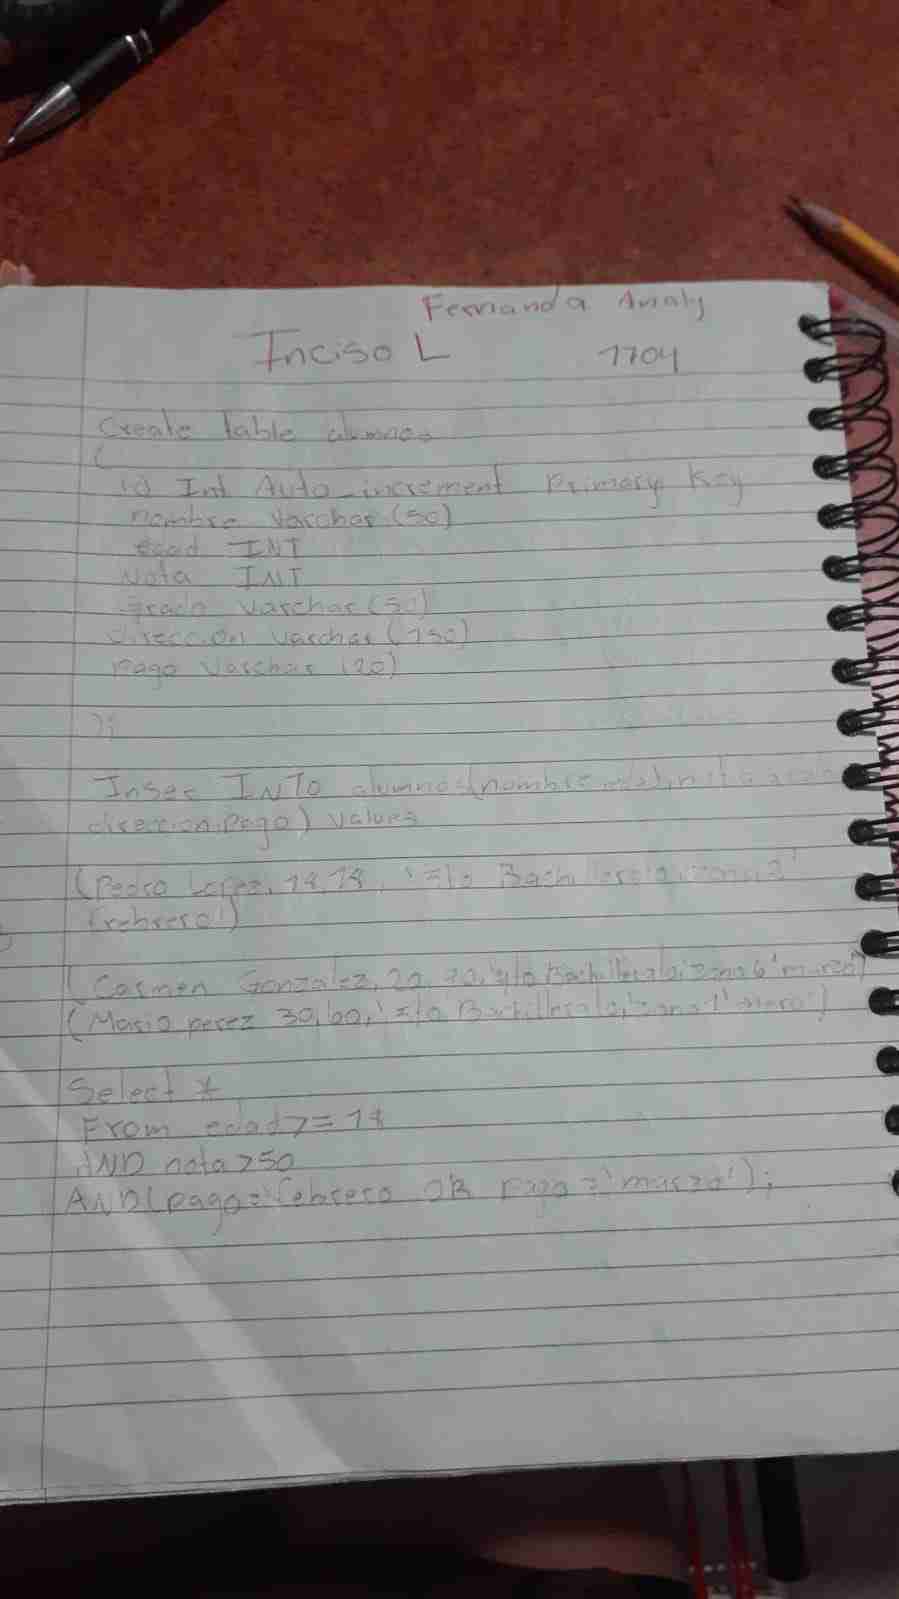 Fernanda Analy
Inciso L 1704
Create table alumnos
(
id Int Auto_increment Primary Key
nombre Varchar (50)
edad INT
Nota INT
grado Varchar (50)
direccion Varchar (150)
pago Varchar (20)
);
Inser INTO alumnos (nombre
direccion, pago) values
(Pedro Lopez, 18, 78, Bachillerato, zona 2'
(febrero')
(Carmen Gonzalez, 20, 70, '4to Bachillerato, zona 6 'marzo')
(Mario perez 30, 60, Bachillerato, 'zona 1'
Select *
From edad >= 18
AND nota >50
AND (pago = 'febrero OR pago = 'marzo');